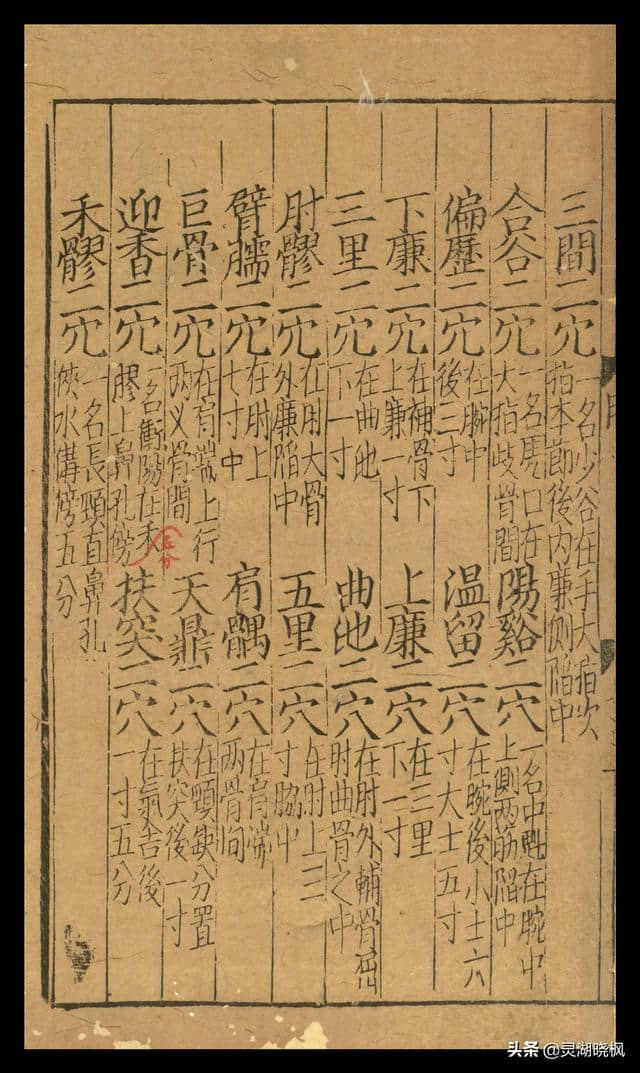 三間二穴 一名少谷在手大指次指本節後内廉側陷中
合谷二穴 一名虎口在大指歧骨間 陽谿二穴 一名中魁在腕中上側两筋陷中
偏歷二穴 在腕中後三寸 温留二穴 在腕後小士六寸大士五寸
下廉二穴 在補骨下上廉一寸 上廉二穴 在三里下一寸
三里二穴 在曲池下一寸 曲池二穴 在肘外輔骨屈肘曲骨之中
肘髎二穴 在肘大骨外廉陷中 五里二穴 在肘上三寸脇中
臂臑二穴 在肘上七寸中 肩髃二穴 在肩端两骨间
巨骨二穴 在肩端上行两义骨間 天鼎二穴 在頸缺分置扶突後一寸
迎香二穴 一名衝陽在禾膠上鼻孔傍五分 扶突二穴 在氣舍後一寸五分
禾髎二穴 一名長頸直鼻孔俠水溝傍五分
头条 @灵湖晓枫